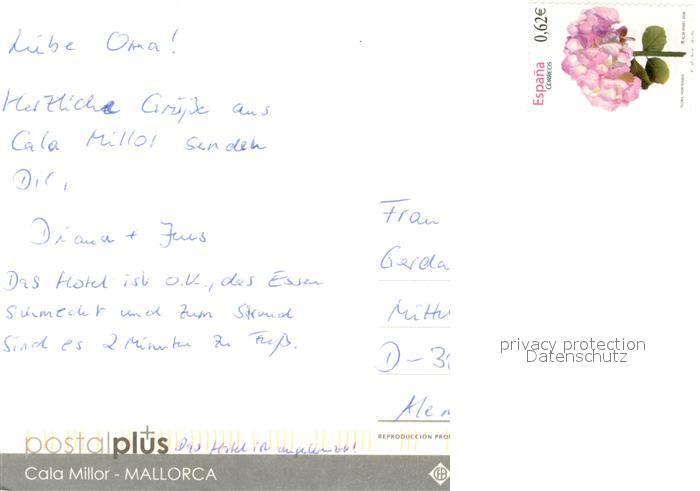 Liebe Oma!
Herzliche Grüße aus
Cala Millor senden
Dir,
Diana + Jens
Das Hotel ist o.k., das Essen
schmeckt und zum Strand
sind es 2 Minuten zu Fuß.
Das Hotel ist
postalplus
Cala Millor - MALLORCA
España
CORREOS
0,62€
Frau
Gerda
Mittel
D-3
Alem
REPRODUCCION PRO
privacy protection
Datenschutz